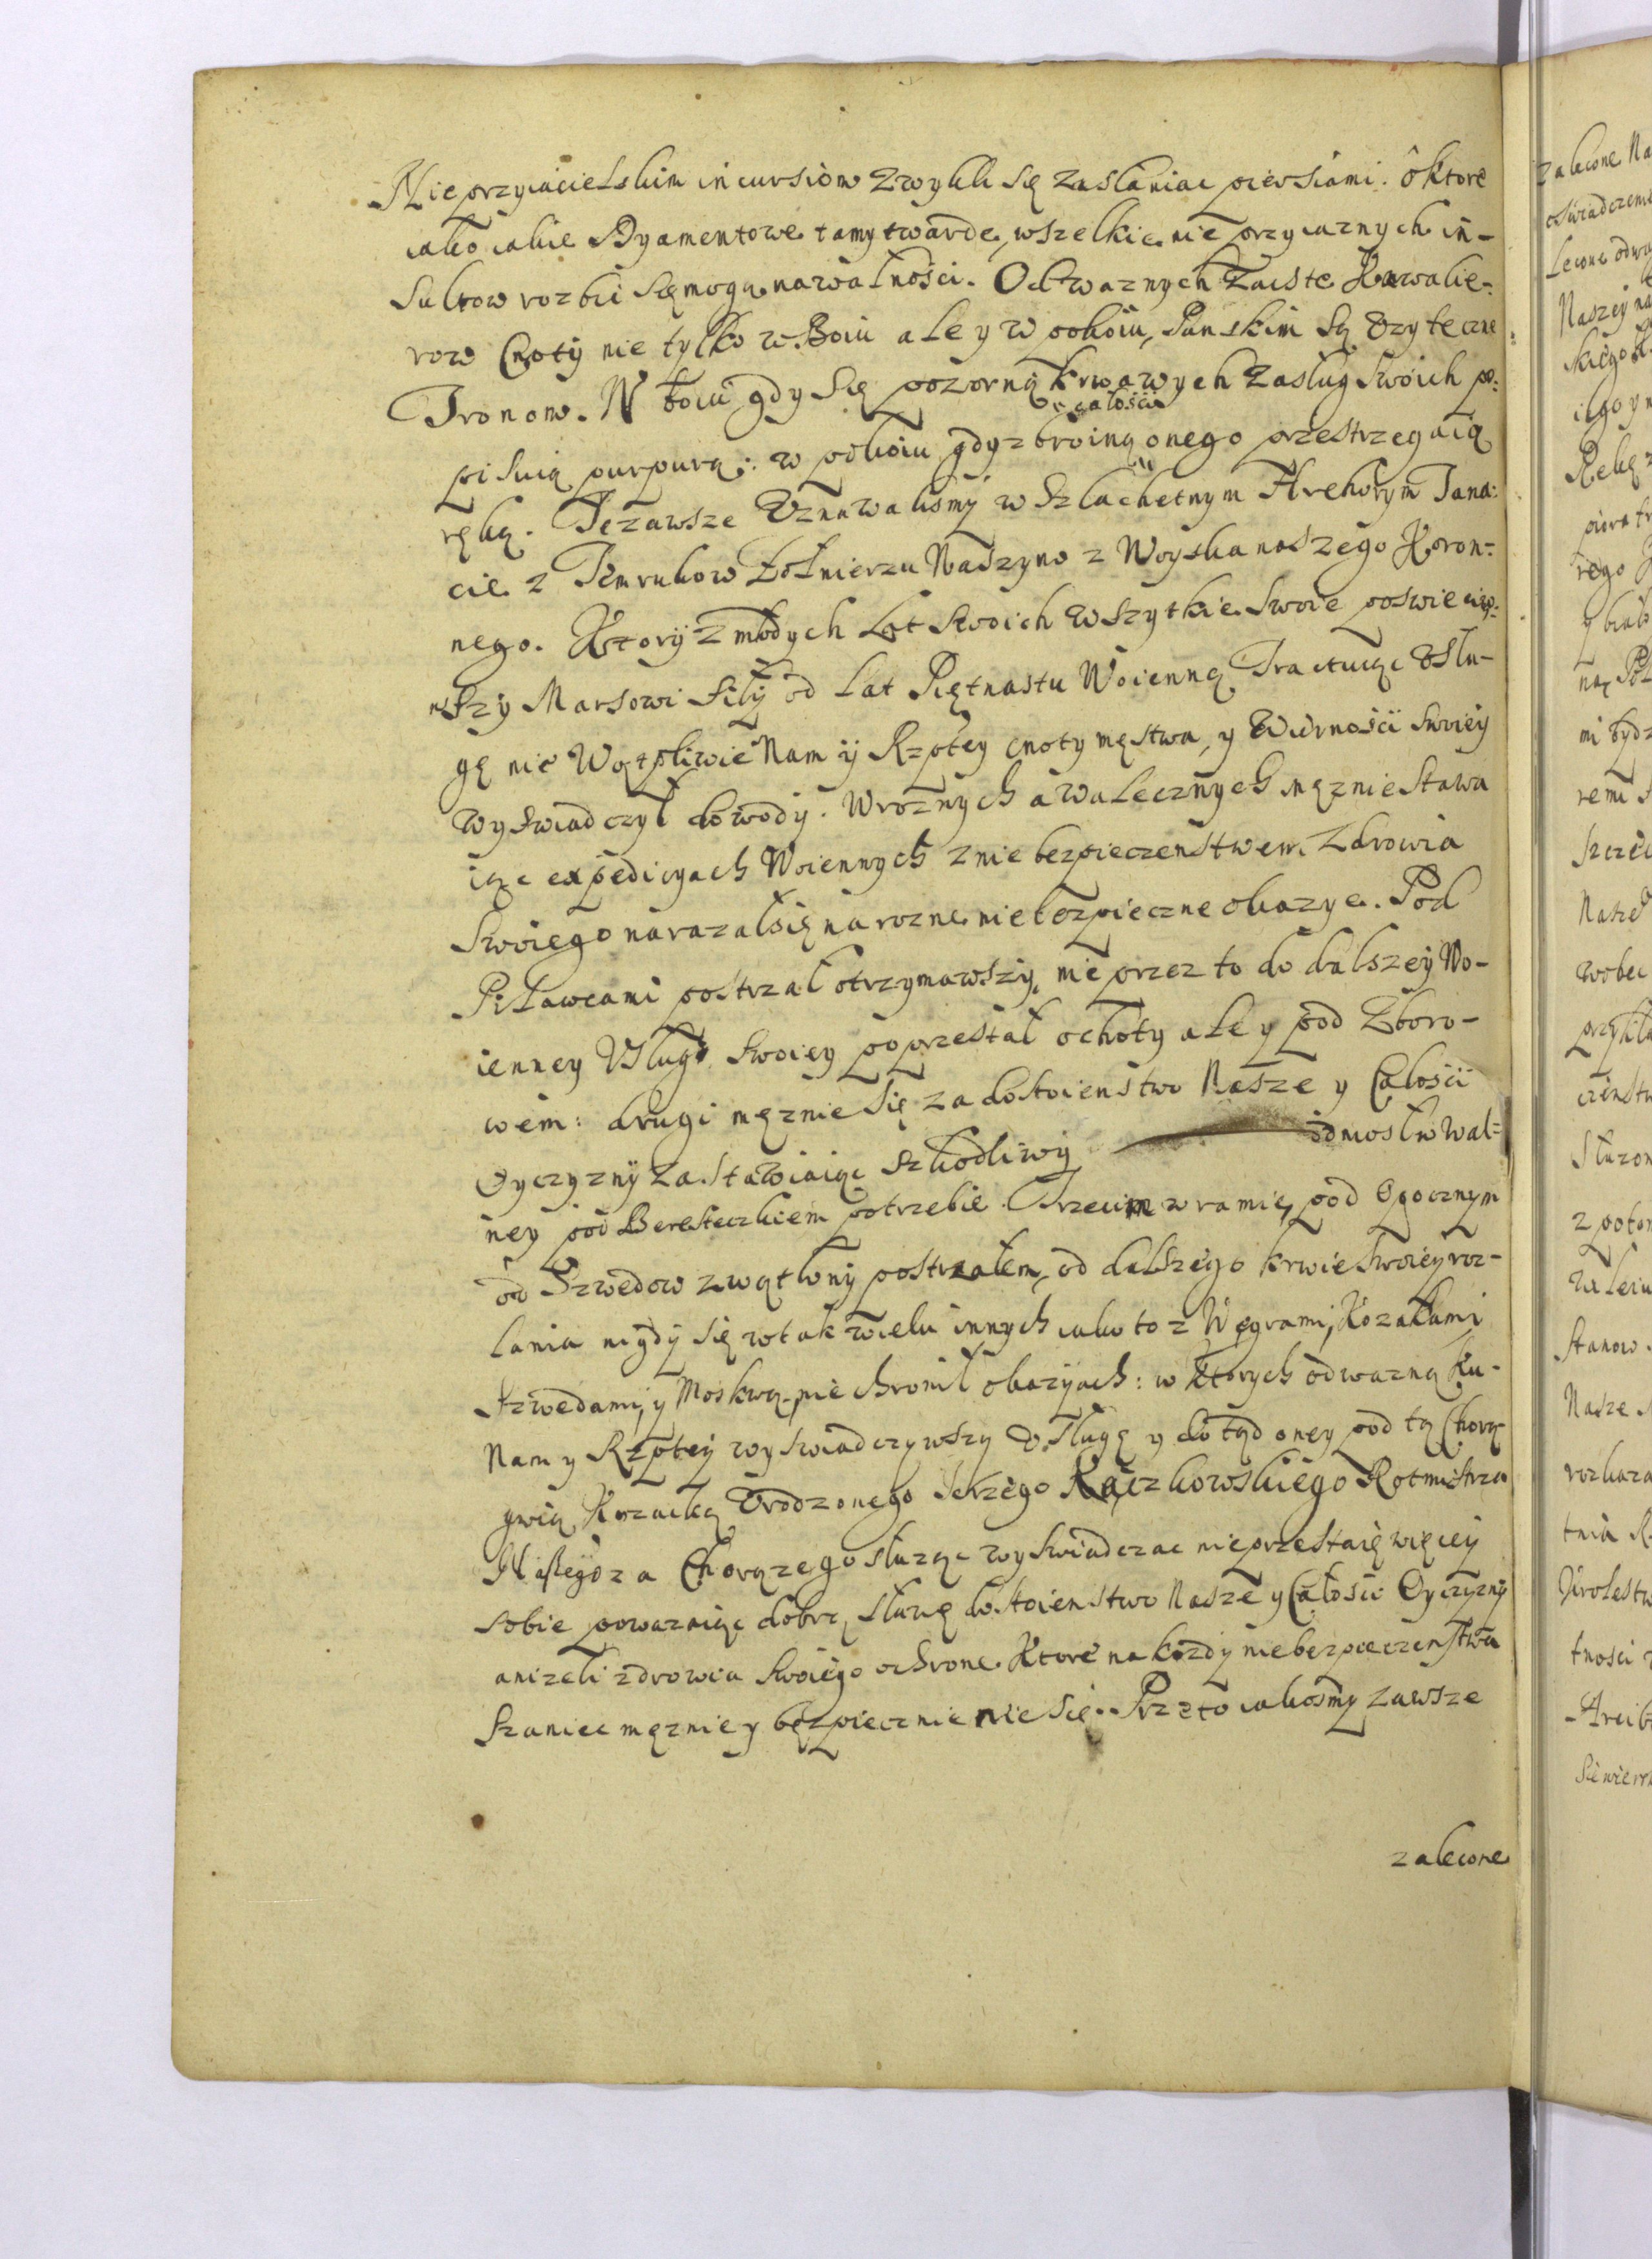 Nieprzyiacielskim incursiom zwykli się zasłaniac piersiami. o ktore
iako iakie Dyamentowe tamy twarde, wszelkie nieprzyiaznych in-
sultow rozbic się mogą nawalności. Odważnych zaiste Kawalie-
row Cnoty nie tylko w Boiu ale y w pokoiu, Panskim są Vzyteczne
Tronom. W boiu gdy się pozorną krwawych zasług swoich po-
całości
pisuią purpurą: w pokoiu gdy zbroiną onego przestrzegaią
ręką. Te zawsze Vznawalismy w Szlachetnym Hrehorym Jana-
cie z Temrukow Zołnierzu Naszym z Woyska naszego Koron-
nego. Ktory z młodych Lat swoich wszytkie swoie poswieciw-
szy Marsowi siły od Lat Piętnastu Woienną Tractuiąc Vsłu-
gę nie Wątpliwie Nam y Rzptey cnoty męstwa, y Wierności swoiey
wyswiadczył dowody. W roznych a walecznych męznie stawa
iąc expedicyach Woiennych z niebezpieczenstwem Zdrowia
swoiego narazał się na rozne niebezpieczne okazye. Pod
Piławcami postrzał otrzymawszy, nie przez to do dalszey Wo-
ienney Vsługi swoiey poprzestał ochoty ale y pod Zboro-
wem: drugi męznie się za dostoienstwo Nasze y Całości
Oyczyzny zastawiaiąc szkodliwy odniosł w wal-
ney pod Beresteczkiem potrzebie. Trzecim w ramię, pod Opocznym
od Szwedow zwątlony postrzałem, od dalszego krwie swoiey roz-
lania nigdy się w tak wielu innych iako to z Węgrami, Kozakami
Szwedami, y Moskwą, nie chronił okazyach: w ktorych odwazną ku
Nam y Rzptey wyswiadczywszy Vsługę y do tąd oney pod tą Chorą
gwią Kozacką Vrodzonego Jerzego Rączkowskiego Rotmistrza
Naszego za Chorązego słuząc wyswiadczac nieprzestaię więcey
sobie powazaiąc dobrą sławę dostoienstwo Nasze y Całosci Oyczyzny
anizeli zdrowia swoiego ochrone. Ktore na kozdy niebezpieczenstwa
szaniec męznie y bezpiecznie niesie. Przeto iakosmy zawsze
zalecone